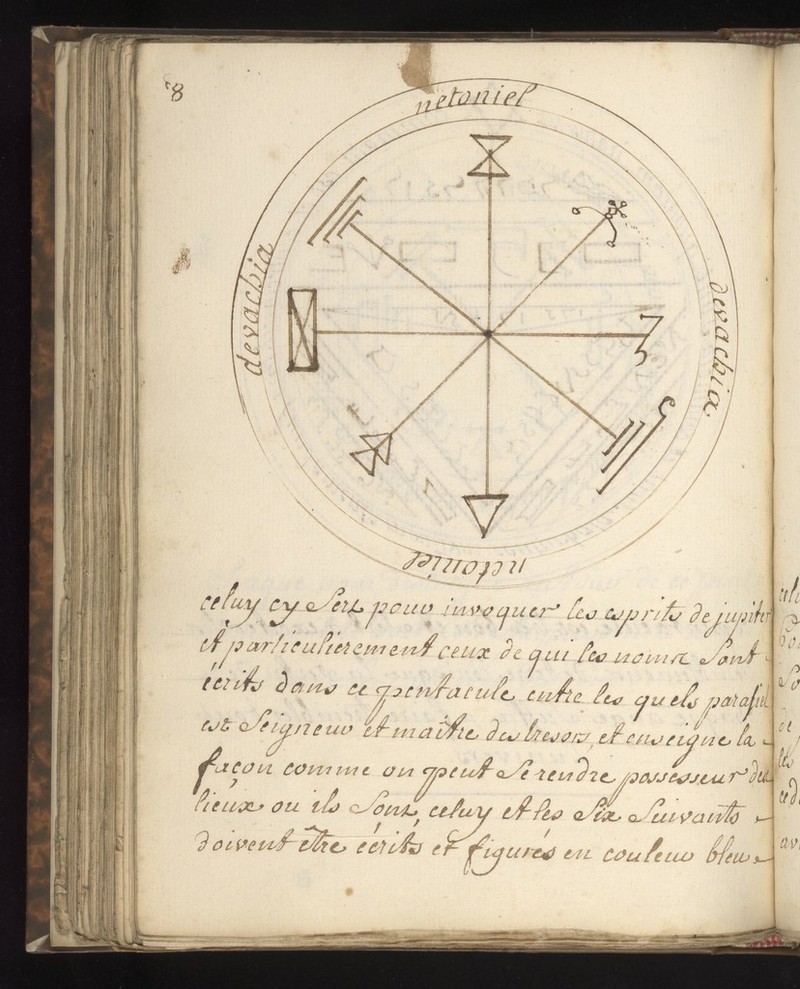 68
netoniel
devachia
devachia
netoniel
celuy cy sert pour invoquer les esprits de jupiter
et particulierement ceux de qui les noms sont
écrits dans ce pentacule entre les quels parasiel
est seigneur et maitre des tresors, et enseigne la
façon comme on peut se rendre possesseur des
lieux ou ils sont, celuy et les six suivants
doivent être écrits et figurés en couleur bleu